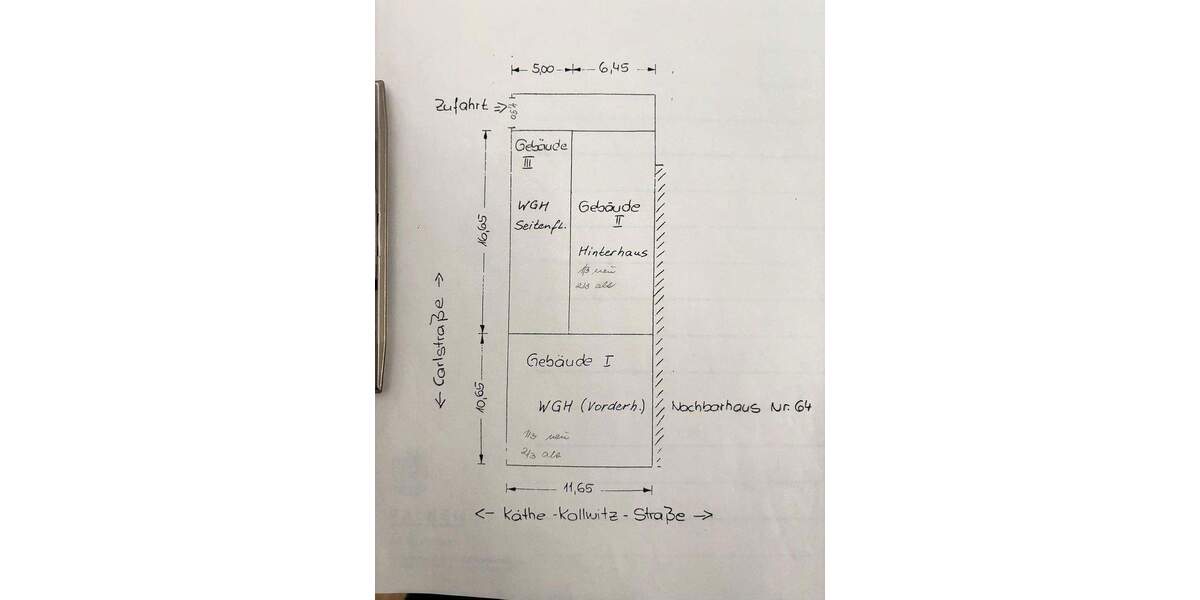 5,00
6,45
Zufahrt ⇒
Gebäude
III
WGH
Seitenfl.
Gebäude
II
Hinterhaus
1/3 neu
2/3 alt
16,65
← Carlstraße →
Gebäude I
WGH (Vorderh.)
1/3 neu
2/3 alt
10,65
Nachbarhaus Nr. 64
11,65
← Käthe-Kollwitz-Straße →